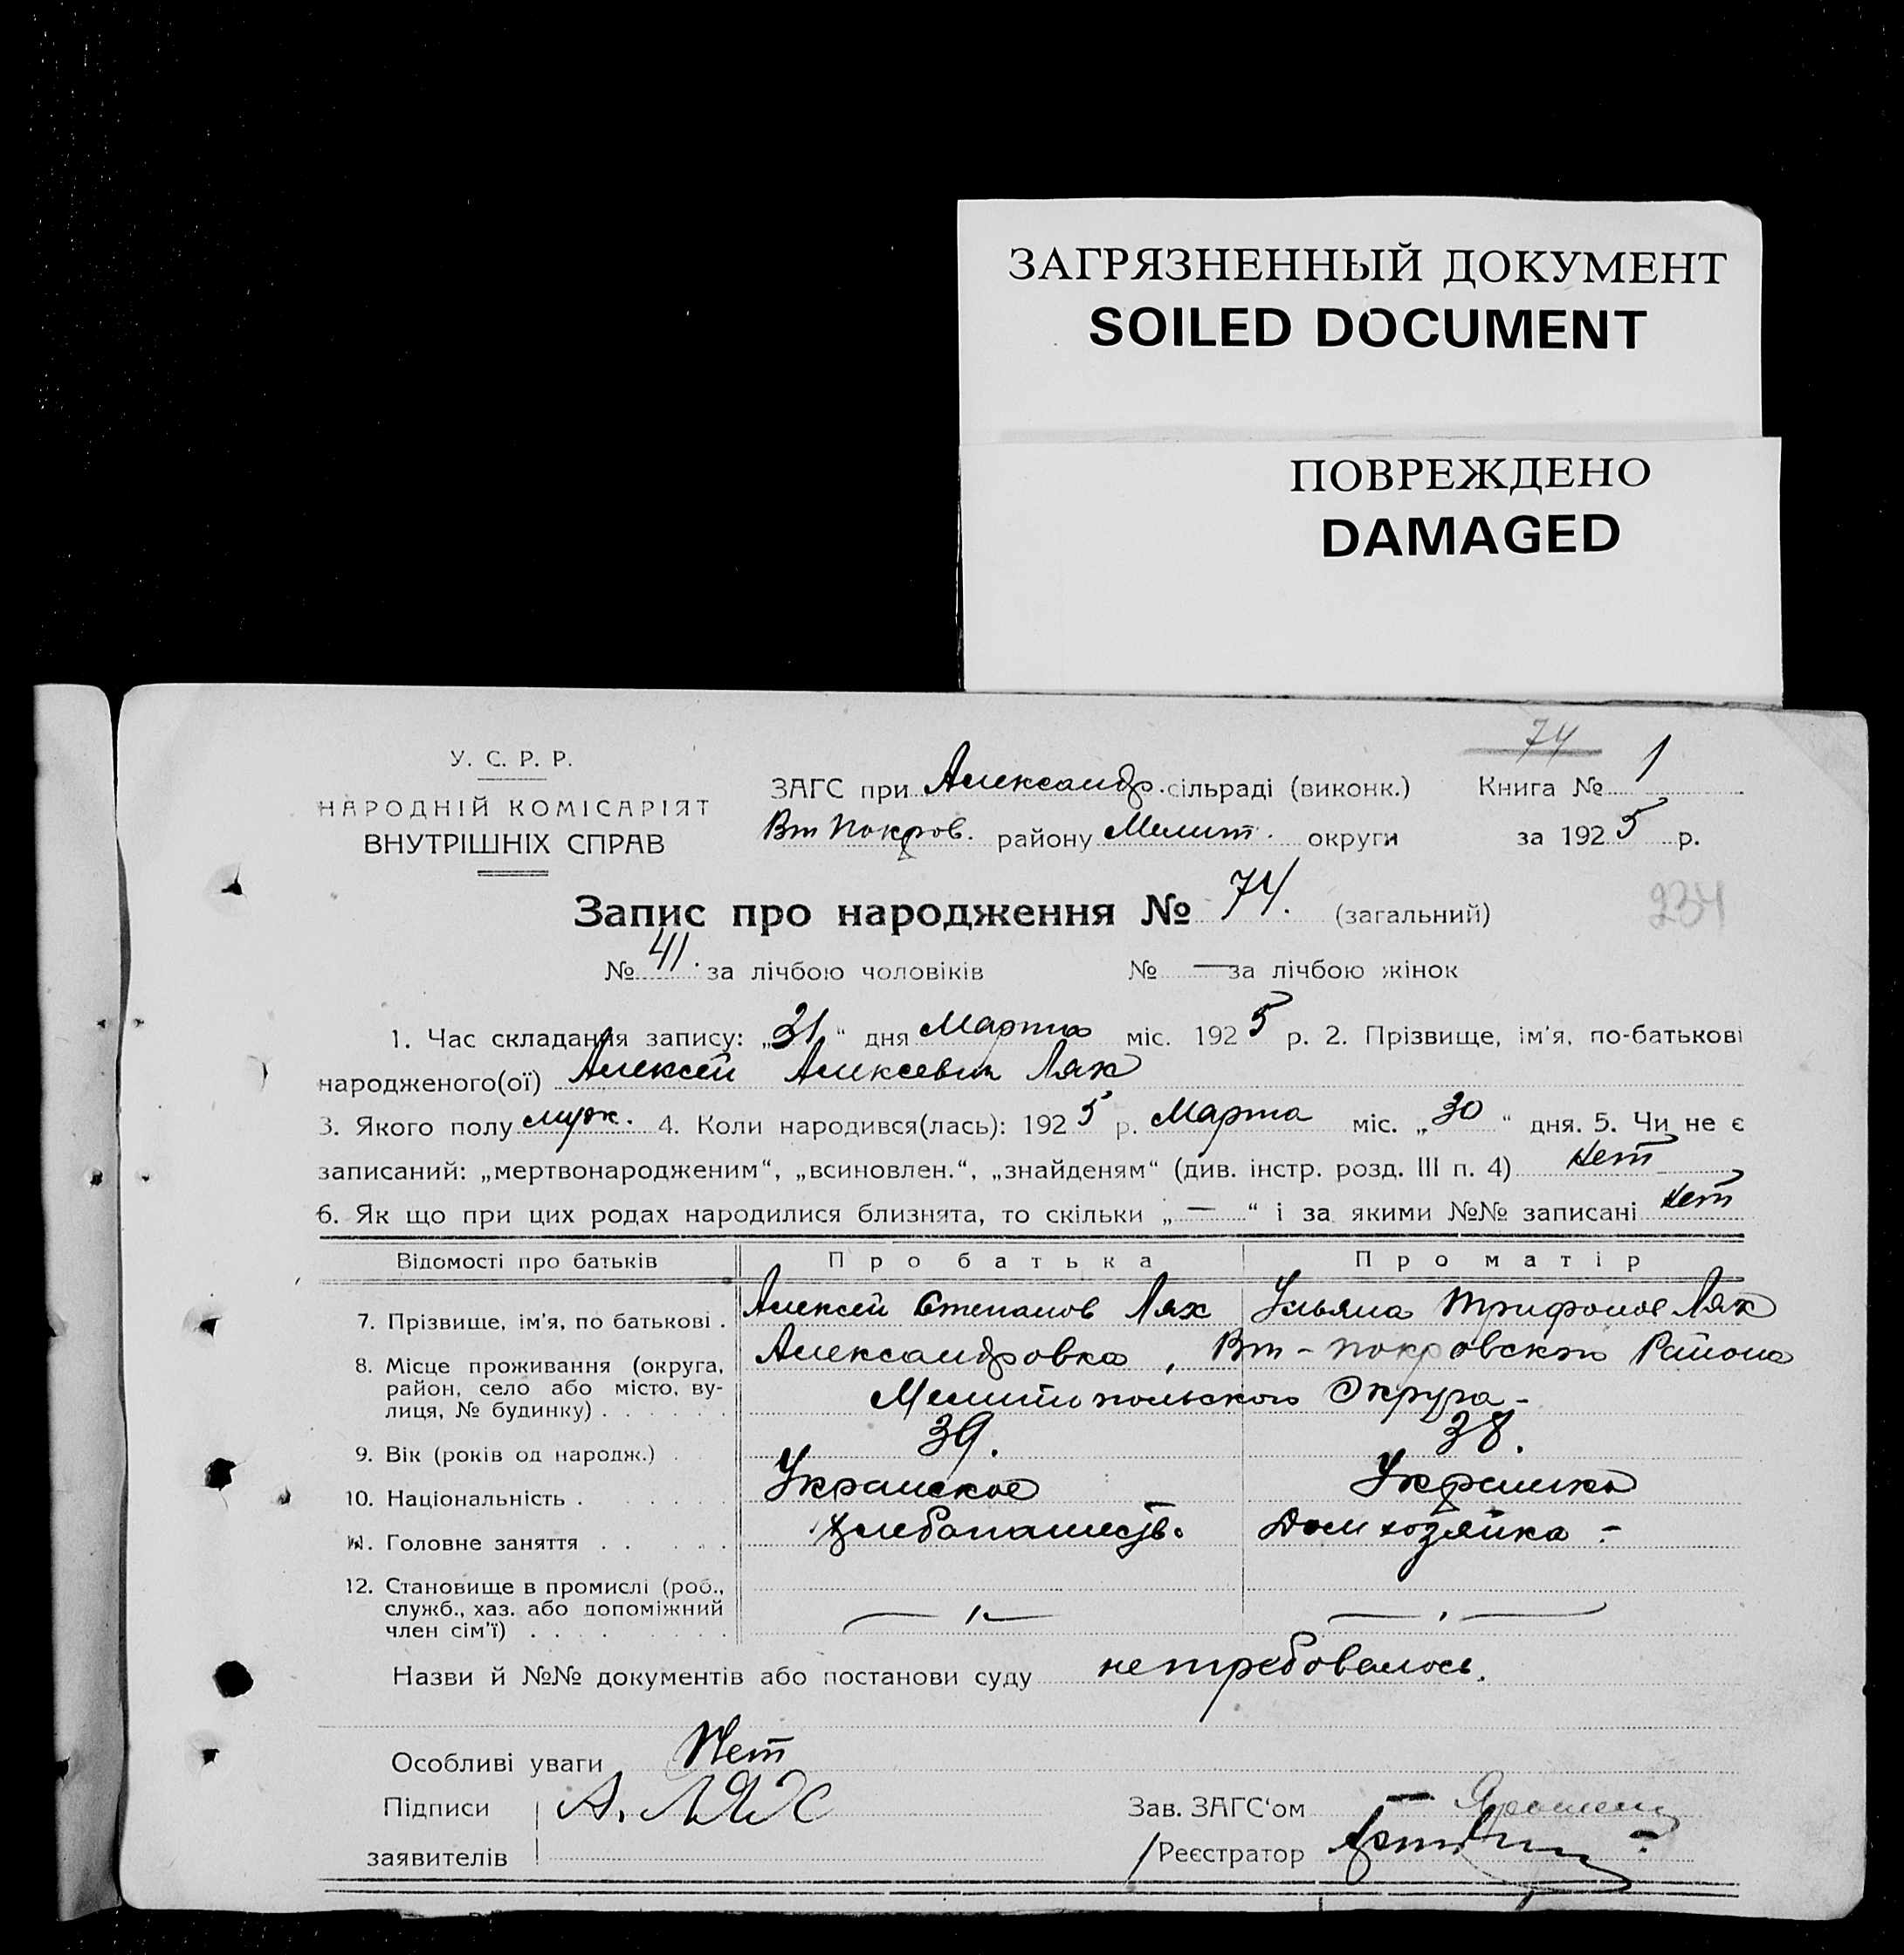 ЗАГРЯЗНЕННЫЙ ДОКУМЕНТ
SOILED DOCUMENT
ПОВРЕЖДЕНО
DAMAGED
74
У. С. Р. Р.
НАРОДНІЙ КОМІСАРІЯТ
ВНУТРІШНІХ СПРАВ
ЗАГС при Александр. сільраді (виконк.) Книга № 1
Вт Покров. району Мелит. округи за 1925 р.
Запис про народження № 74. (загальний)
234
№ 41. за лічбою чоловіків № — за лічбою жінок
1. Час складання запису: „31“ дня Марта міс. 1925 р. 2. Прізвище, ім'я, по-батькові
народженого(ої) Алексей Алексевич Лях
3. Якого полу муж. 4. Коли народився(лась): 1925 р. Марта міс. „30“ дня. 5. Чи не є
записаний: „мертвонародженим“, „всиновлен.“, „знайденям“ (див. інстр. розд. III п. 4) Нет
6. Як що при цих родах народилися близнята, то скільки „—“ і за якими №№ записані Нет
Відомості про батьків Про батька Про матір
7. Прізвище, ім'я, по батькові . Алексей Степанов Лях Ульяна Трифонов Лях
8. Місце проживання (округа, район, село або місто, ву-лиця, № будинку) . Александровка, Вт-Покровского Района
Мелитопольского Округа -
9. Вік (років од народж.) . 39. 38.
10. Національність . Украинка
11. Головне заняття . . Хлебопашеств. Домхозяйка -
12. Становище в промислі (роб.,
служб., хаз. або допоміжний
член сім'ї) . . . .
Назви й №№ документів або постанови суду не требовалось.
Особливі уваги Нет
Підписи А. ЛЯХ Зав. ЗАГС‘ом
заявителів Реєстратор